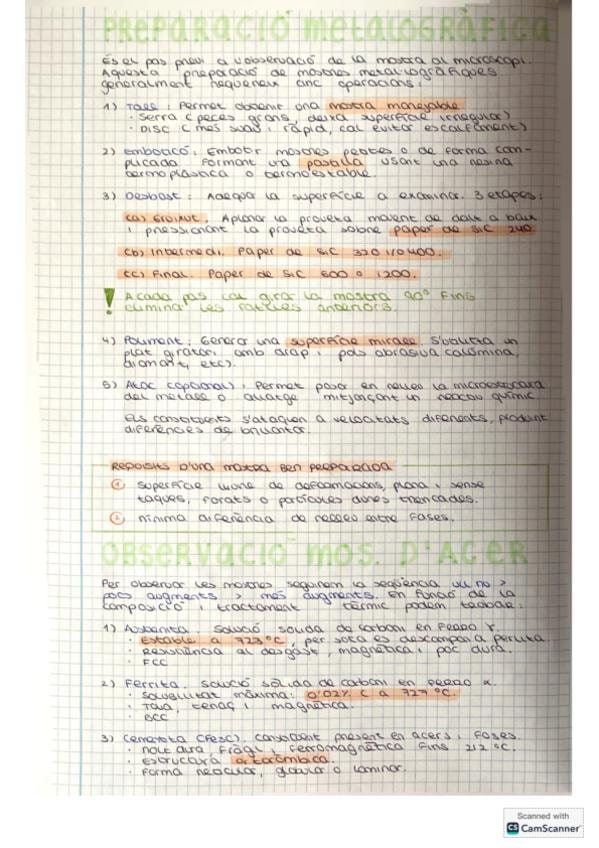 PREPARACIÓ METALOGRÀFICA
És el pas previ a l'observació de la mostra al microscopi.
Aquesta preparació de mostres metal·logràfiques
generalment requereix cinc operacions:
1) Tall: Permet obtenir una mostra manejable
· Serra (peces grans, deixa superfície irregular)
· Disc (més suau i ràpid, cal evitar escalfament)
2) Embotició: Embotir mostres petites o de forma com-
plicada formant una pastilla usant una resina
termoplàstica o termoestable.
3) Desbast: Adequar la superfície a examinar. 3 etapes:
(a) Groixut. Aplanar la proveta movent de dalt a baix
i pressionant la proveta sobre paper de SiC 240
(b) Intermedi. Paper de SiC 320 i/o 400.
(c) Final. Paper de SiC 600 o 1200.
! A cada pas cal girar la mostra 90° fins
eliminar les ratlles anteriors.
4) Poliment: Generar una superfície mirall. S'utilitza un
plat giratori amb drap i pols abrasiva (alúmina,
diamant, etc).
5) Atac (opcional): Permet posar en relleu la microestructura
del metall o aliatge mitjançant un reactiu químic.
Els constituents s'ataquen a velocitats diferents, produint
diferències de brillantor.
REQUISITS D'UNA MOSTRA BEN PREPARADA
1 Superfície lliure de deformacions, plana i sense
taques, forats o partícules dures trencades.
2 Mínima diferència de relleu entre fases.
OBSERVACIÓ MOS. D'ACER
Per observar les mostres seguirem la seqüència ull nu >
pocs augments > més augments. En funció de la
composició i tractament tèrmic podem trobar:
1) Austenita. Solució sòlida de carboni en ferro γ.
· Estable a 723°C, per sota es descompon a perlita.
· Resistència al desgast, magnètica i poc dura.
· FCC
2) Ferrita. Solució sòlida de carboni en ferro α.
· Solubilitat màxima: 0'02% C a 727 °C.
· Tova, tenaç i magnètica.
· BCC
3) Cementita (Fe3C). Constituent present en acers i foses.
· Molt dura, fràgil i ferromagnètica fins 212 °C.
· Estructura ortoròmbica.
· Forma reticular, globular o laminar.
Scanned with
CS CamScanner